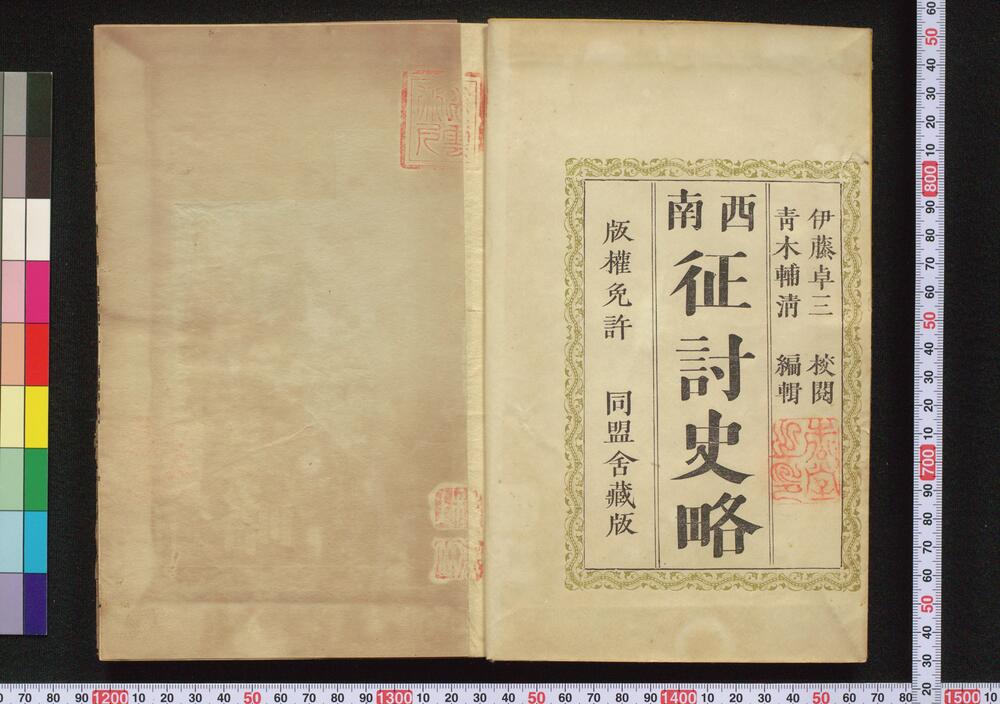 伊藤卓三 校閲
青木輔清 編輯
西南
征討史略
版權免許 同盟舍藏版